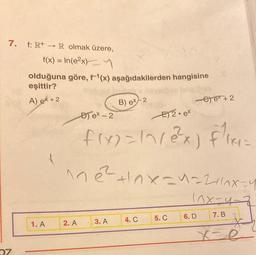 7. f: R⁺ → R olmak üzere,
f(x) = ln(e²x)
olduğuna göre, f⁻¹(x) aşağıdakilerden hangisine
eşittir?
A) eˣ + 2
B) eˣ⁻²
C) eˣ + 2
D) eˣ − 2
E) 2 • eˣ
f(x)=ln(e²x) f⁻¹(x)=
ln e² + ln x = y = 2 + ln x = y
ln x = y − 2
1. A 2. A 3. A 4. C 5. C 6. D 7. B
x = e